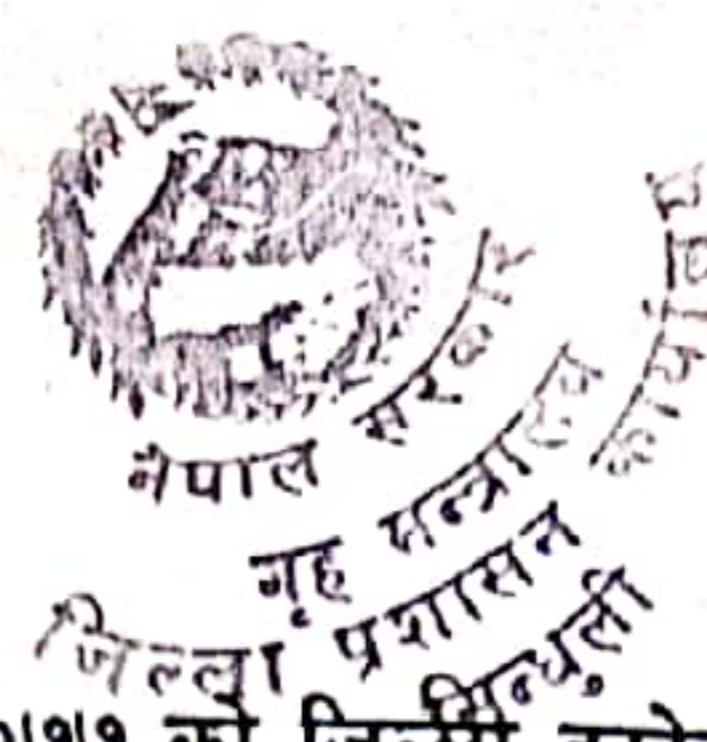 नेपाल सरकार
गृह मन्त्रालय
जिल्ला प्रशासन कार्यालय
सिन्धुली
को